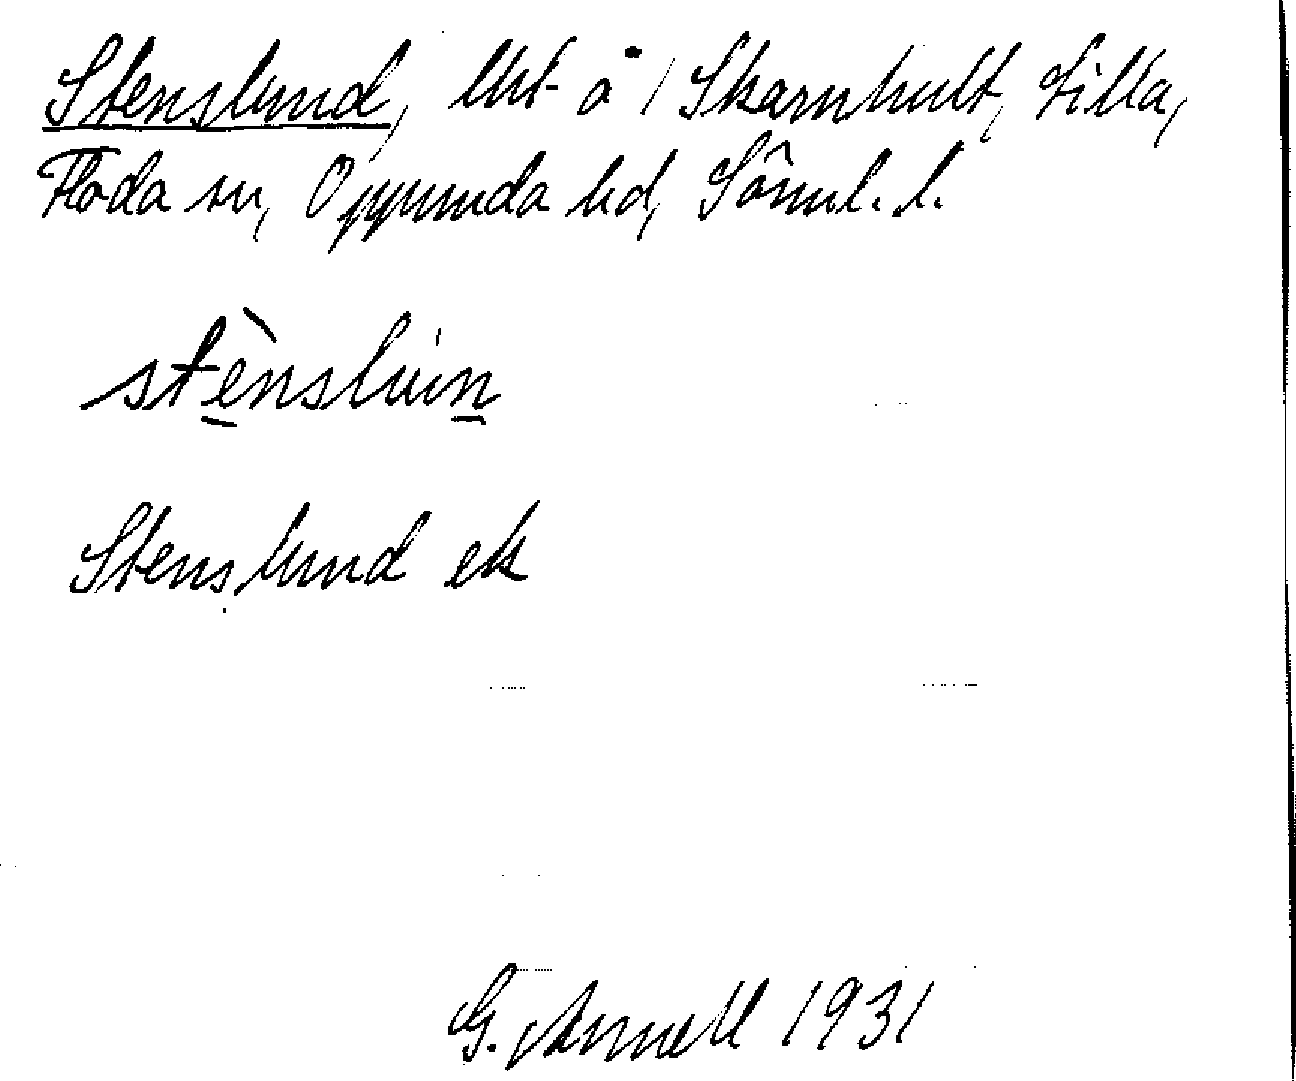 Stenslund, lht å 1 Skarnhult, Lilla,
Floda sn, Oppunda hd, Söml. l.
stènslun
Stenslund ek
G. Annell 1931